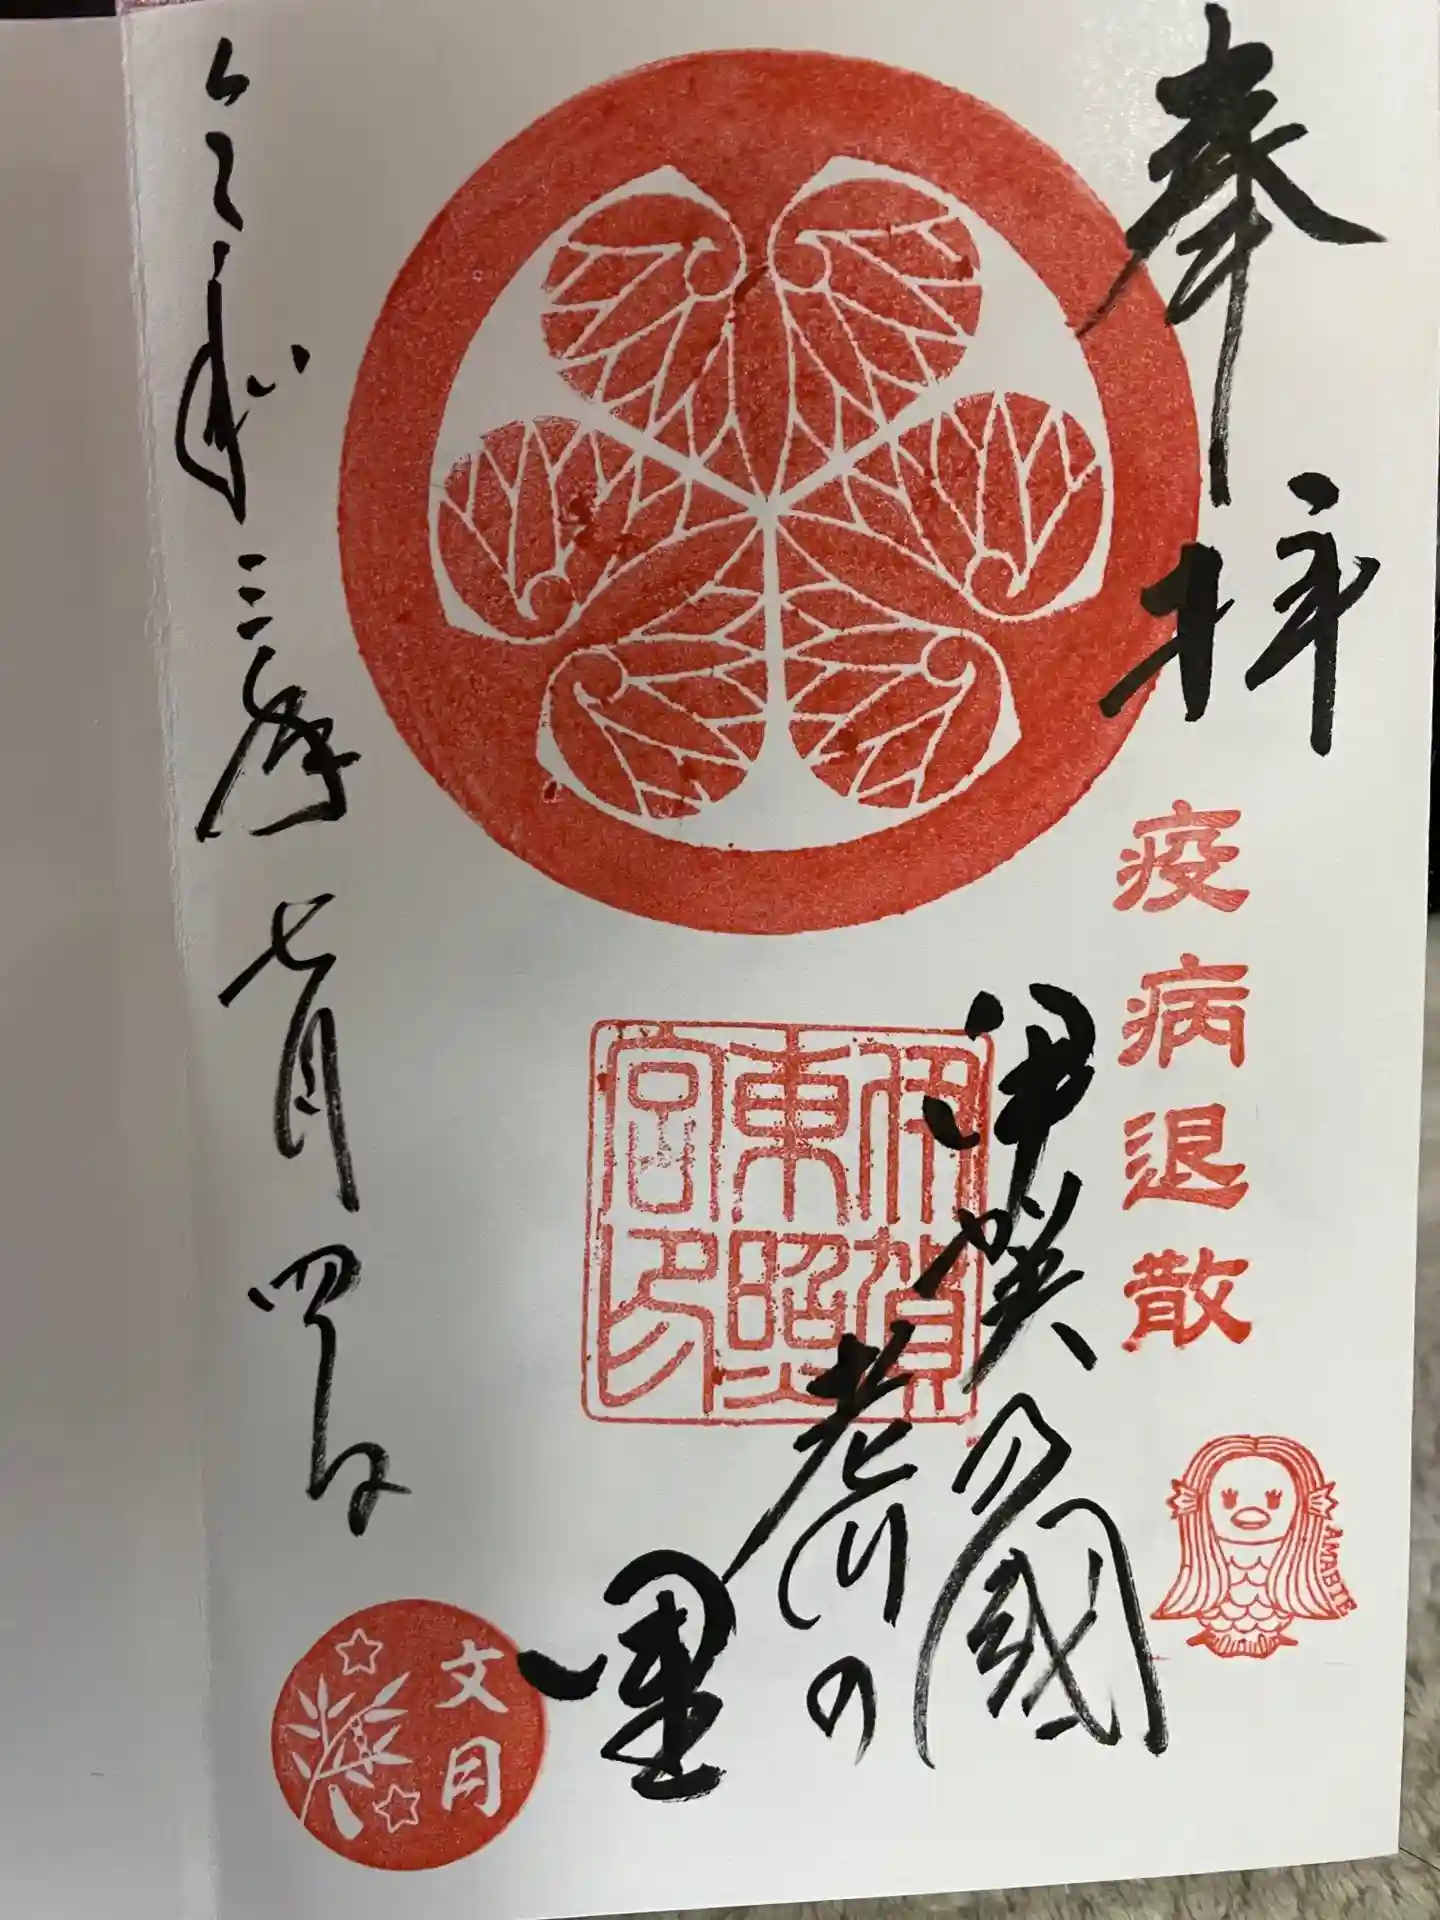 奉拝
疫病退散
AMABIE
伊賀乃國
老川の
里
伊賀
東照
宮印
令和三年七月四日
文月